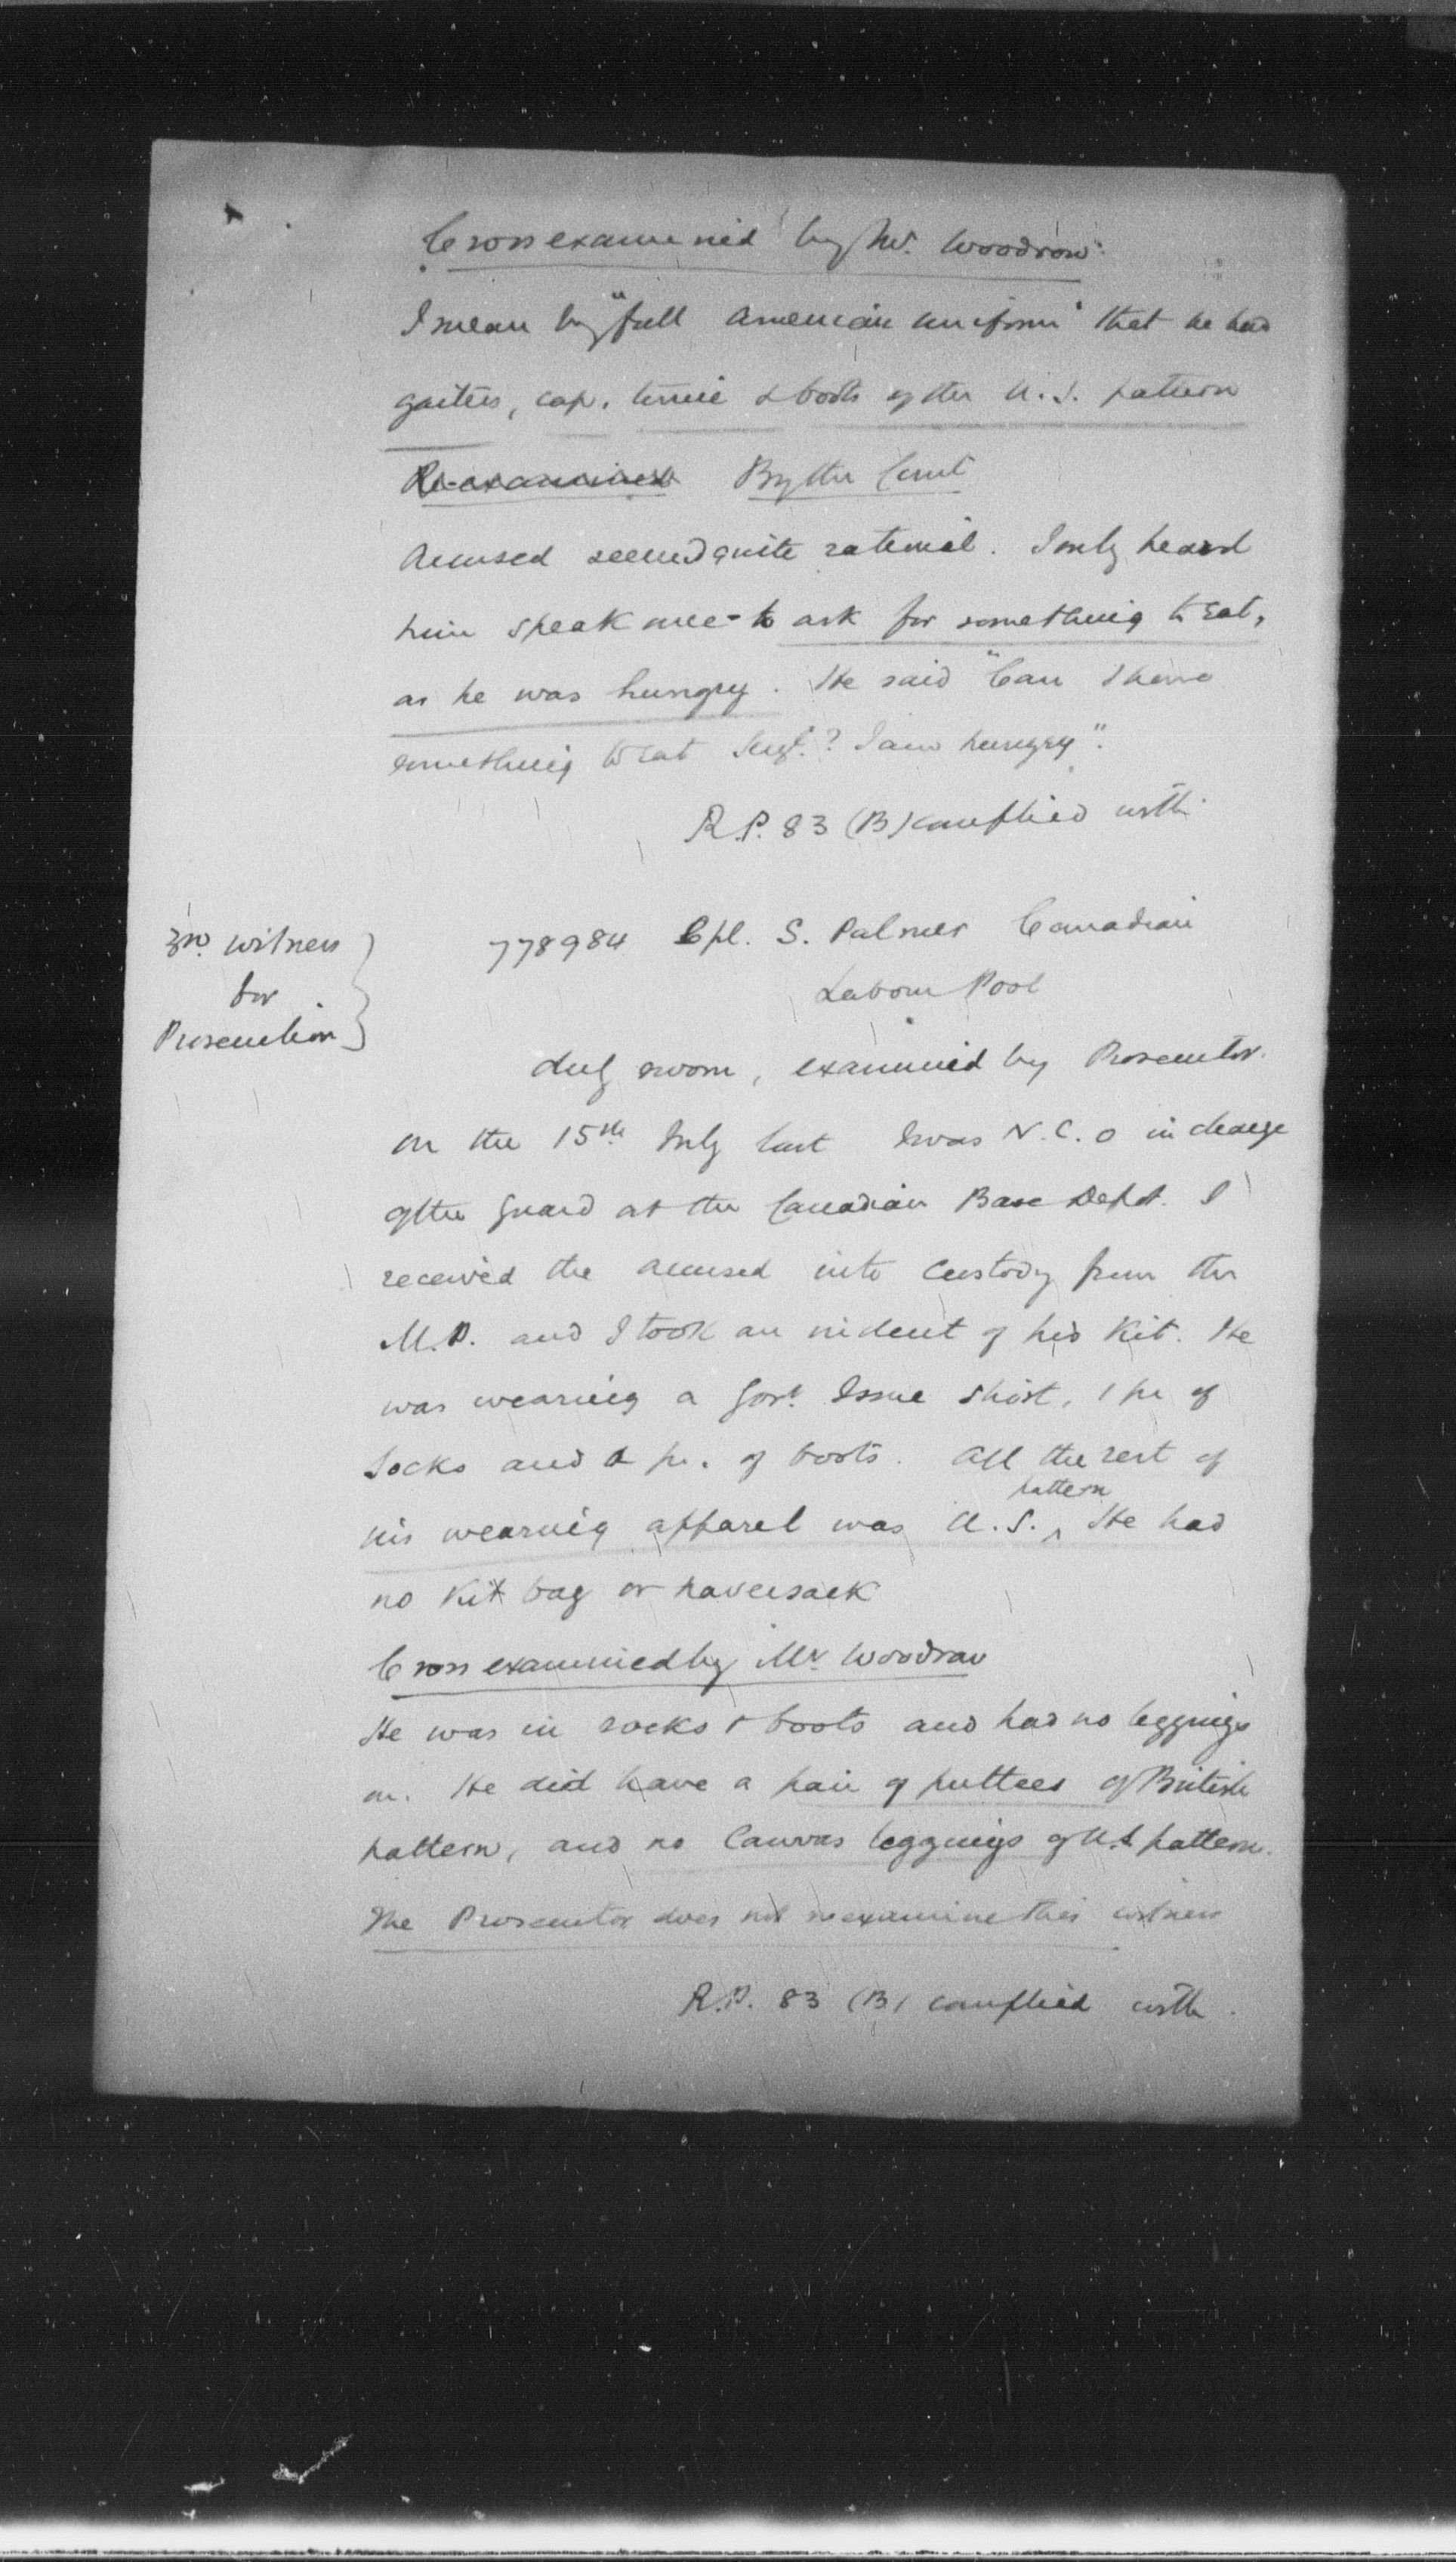 Cross examined by Mr. Woodrow.
I mean by "full American uniform" that he had
gaiters, cap, tunic & boots of the U.S. pattern
Re-examined By the Court
Accused seemed quite rational. I only heard
him speak once - to ask for something to eat,
as he was hungry. He said "Can I have
something to eat Sergt.? I am hungry".
R.P. 83 (B) complied with.
3rd. Witness
for
Prosecution
778984 Cpl. S. Palmer Canadian
Labour Pool
duly sworn, examined by Prosecutor.
On the 15th July last I was N.C.O in charge
of the Guard at the Canadian Base Depot. I
received the accused into custody from the
M.P. and I took an indent of his Kit. He
was wearing a Govt. Issue shirt, 1 pr of
socks and a pr. of boots. All the rest of
his wearing apparel was U.S. pattern He had
no Kit bag or haversack
Cross examined by Mr Woodrow
He was in socks & boots and had no leggings
on. He did have a pair of puttees of British
pattern, and no Canvas leggings of U.S pattern.
The Prosecutor does not reexamine this witness
R.P. 83 (B) complied with.